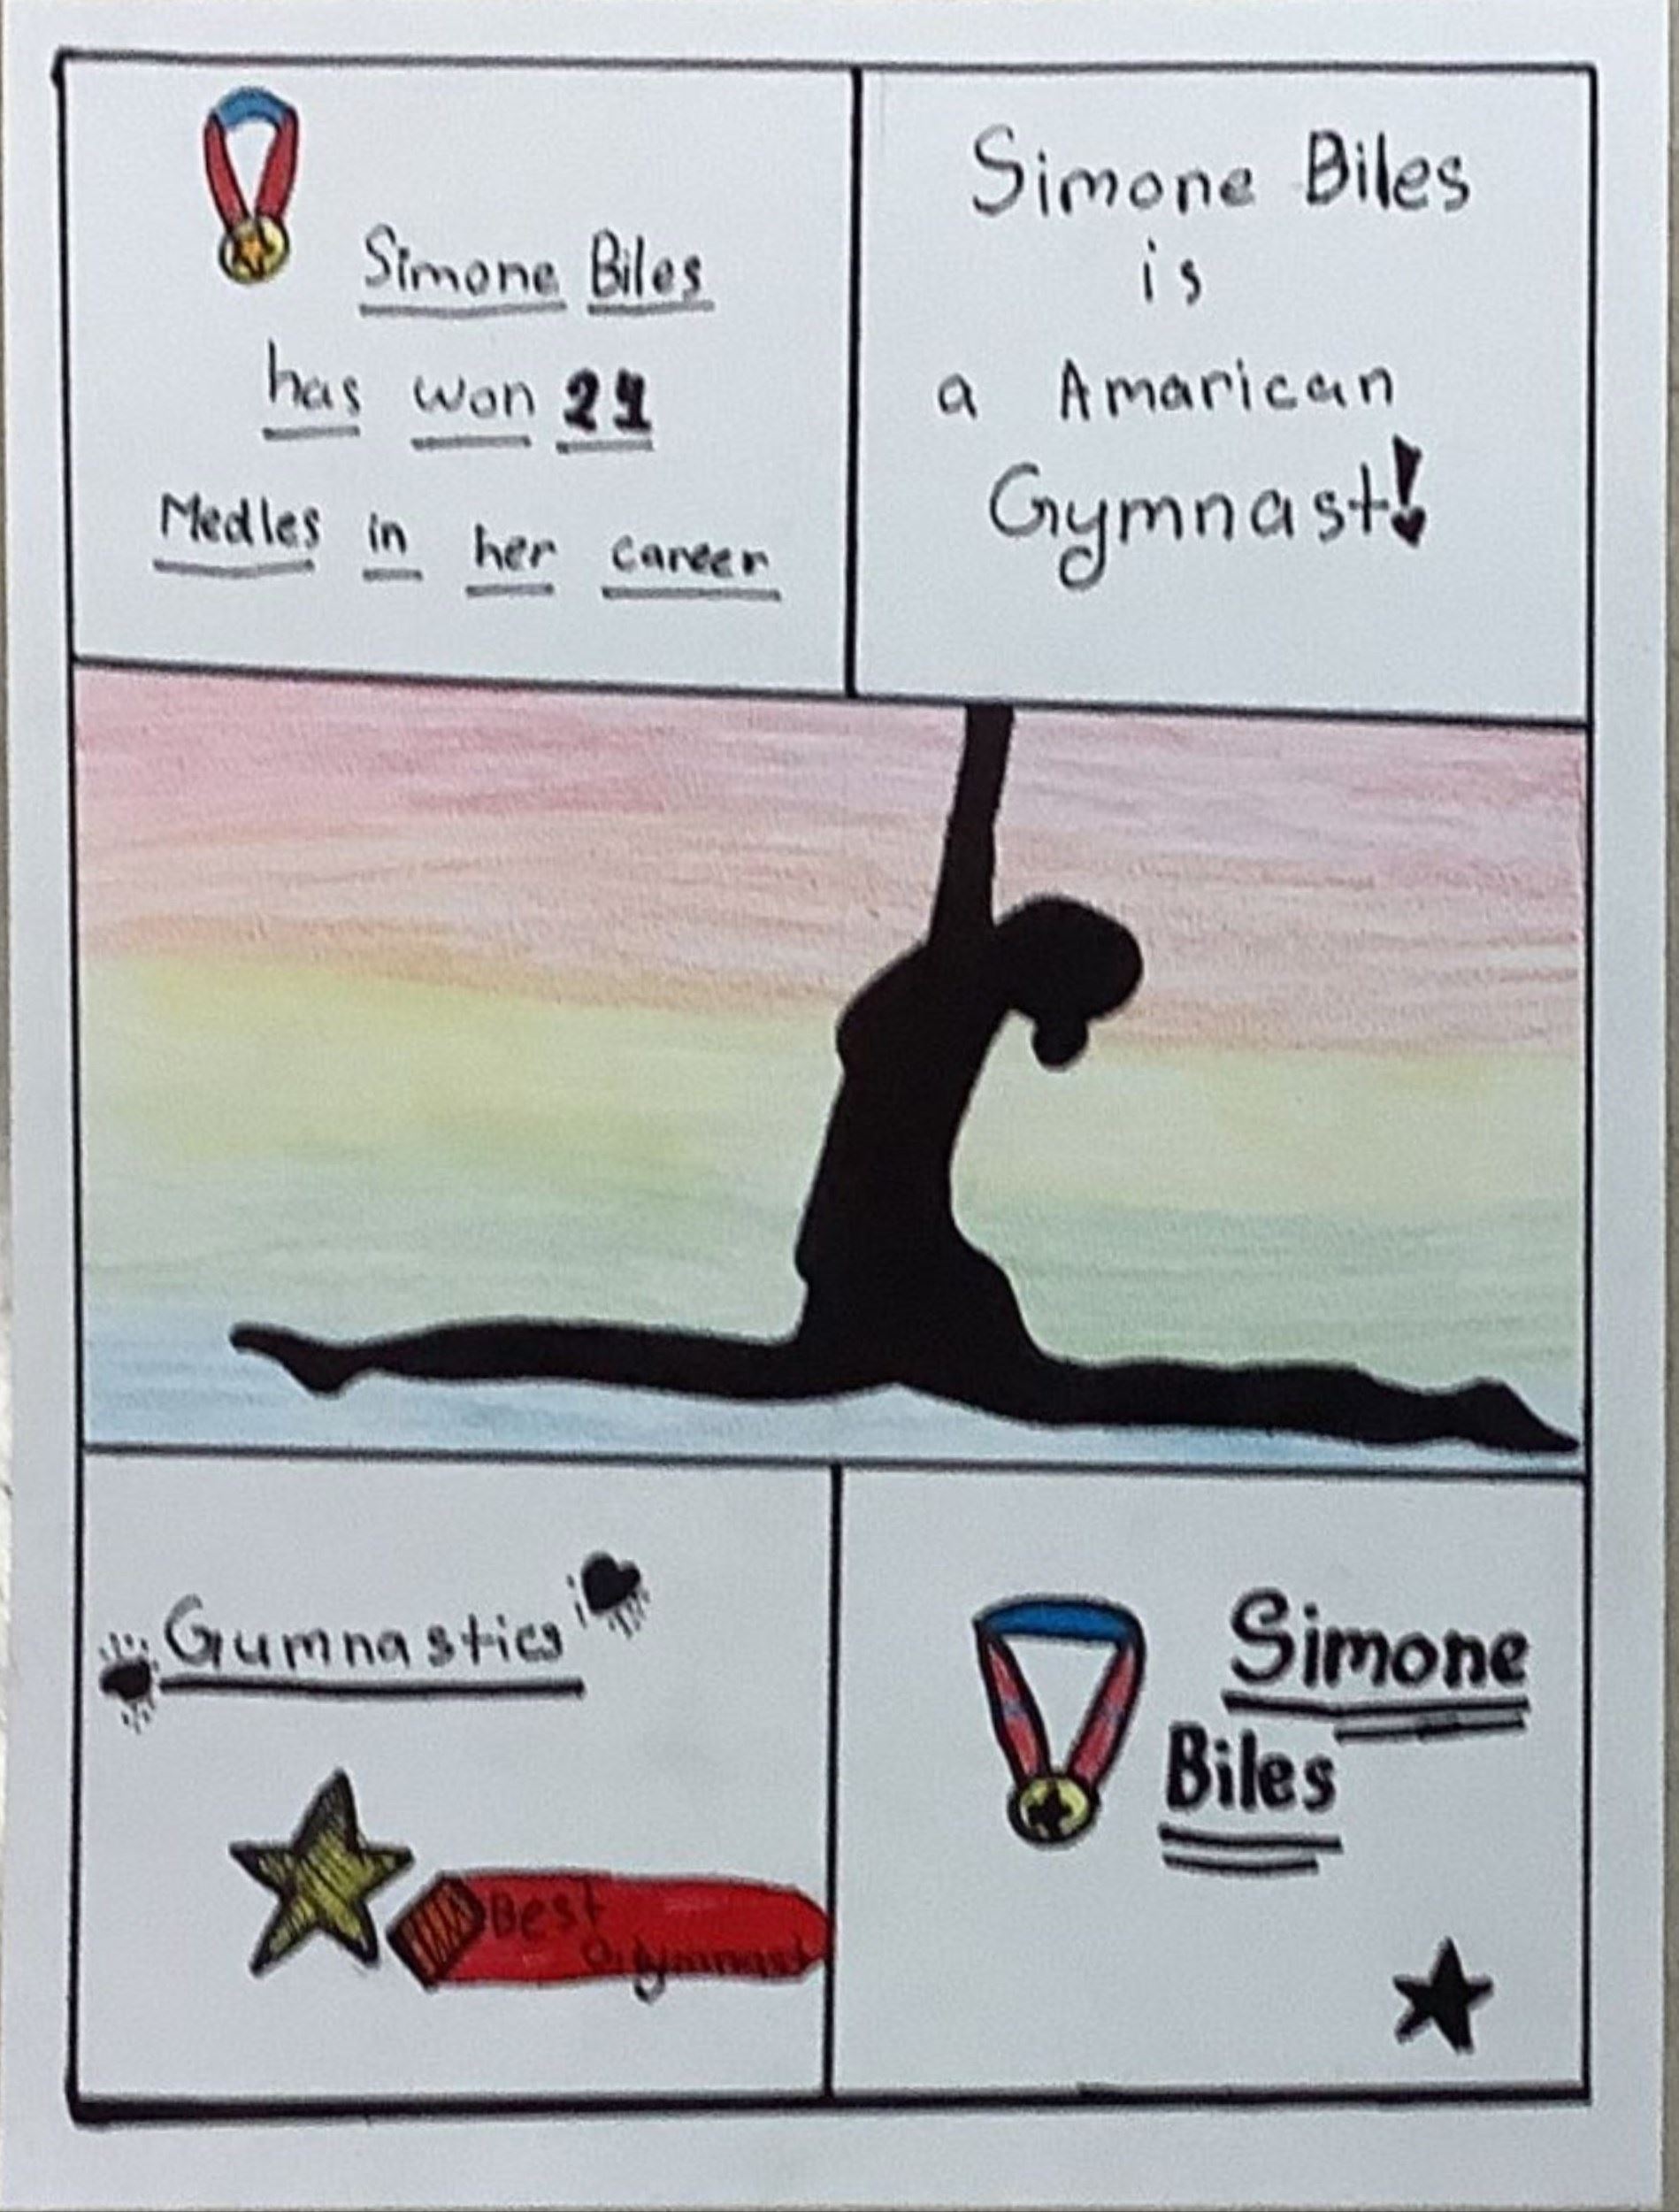 Simone Biles
has won
Medles in her career
Simone Biles
is
a Amarican
Gymnast!
Gumnastics
Best
Gymnast
Simone
Biles